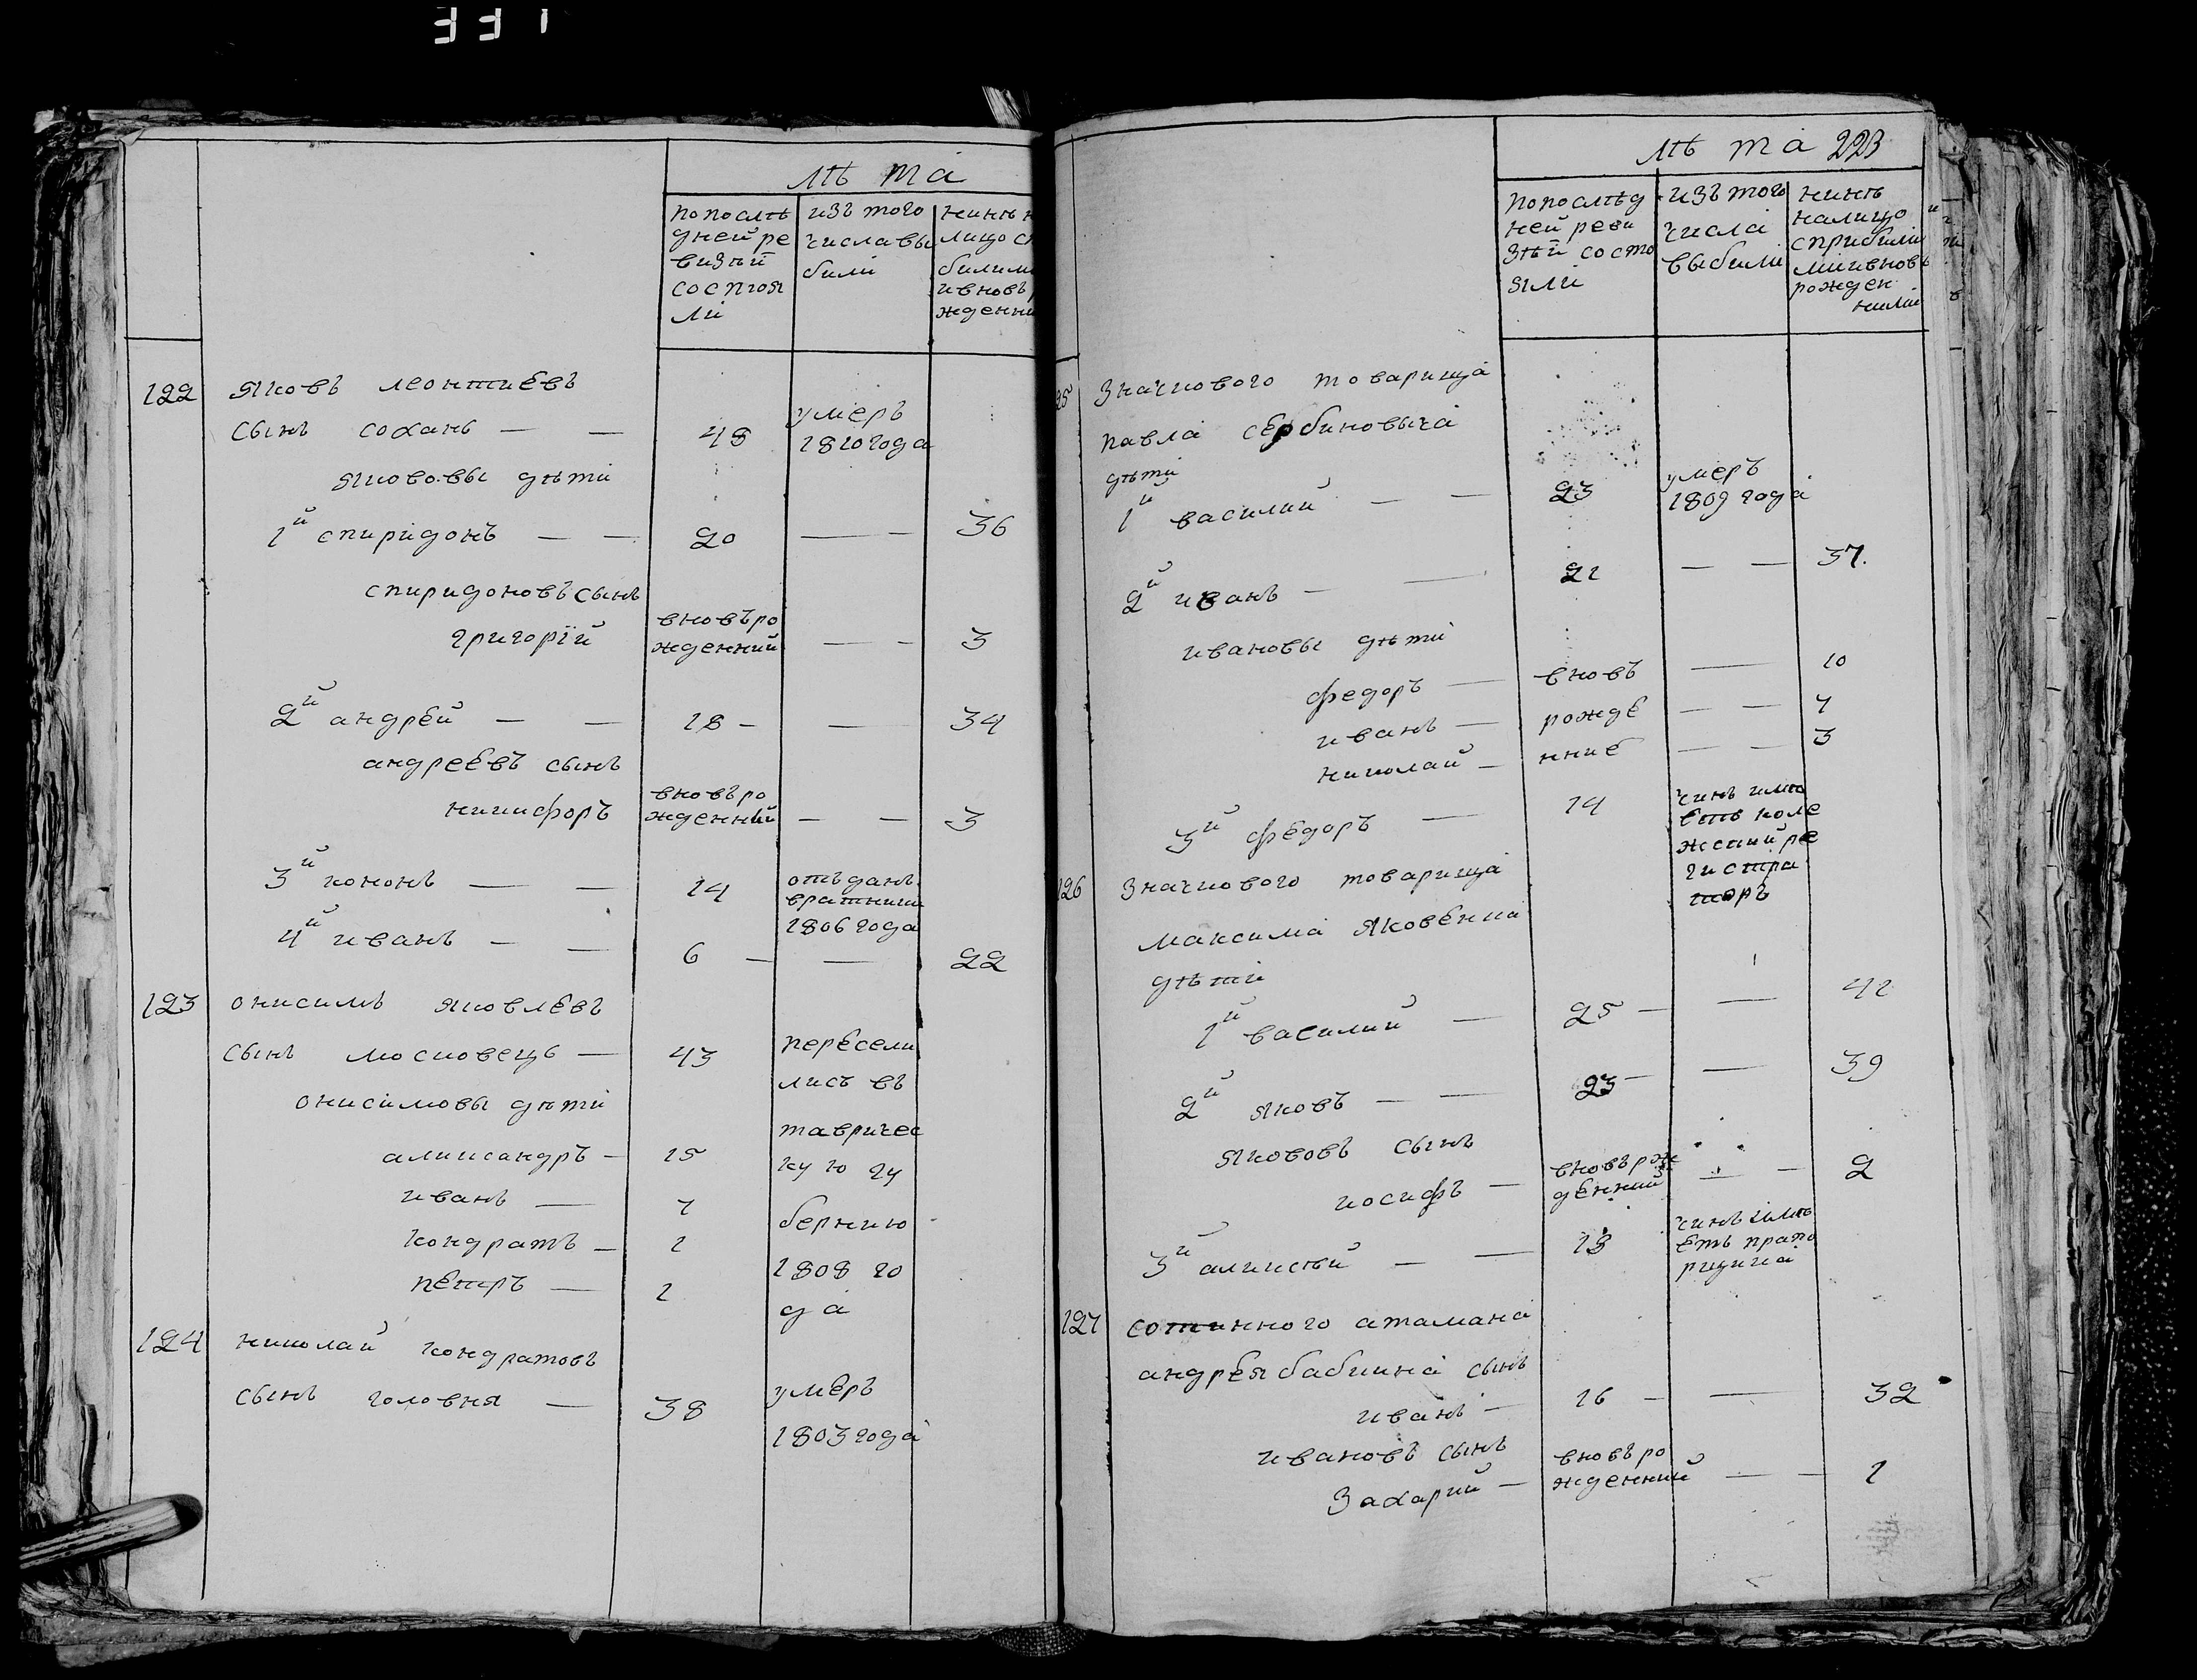 лѣта
попослѣ
дней ре
визѣи
состоя
ли
изъ того
числа вы
были
нинѣ н
лицо с
билими
ивновъ р
жденни
122 яковъ леонтиевъ
сынъ сохань — — 48 умеръ 1810 года
яковови дѣти
1й спиридонъ — — 20 — — 36
спиридоновъ сынъ
григорїй вновъ ро
жденний — — 3
2й андрей — — 18 — — 34
андреевъ сынъ
никифоръ вновъ ро
жденний — — 3
3й кононъ — — 14 отъданъ
вратники
1806 года
4й иванъ — — 6 — — 22
123 онисимъ яковлевъ
сынъ московець — 43 пересели
лисъ въ
онисимовы дѣти
тавричес
аликсандръ — 15 кую гу
иванъ — 7
бернию
кондратъ — 1
1808 го
петръ — 1
да
124 николай кондратовъ
сынъ головня — 38 умеръ
1803 года
лѣта 223
попослѣд
ней реви
зѣи состо
яли
изъ того
числа
выбили
нинѣ
налицо
сприбили
миивновъ
рожден
ними
25 значкового товарища
павла сербиновыча
дѣти
1й василий — — 23 умеръ
1809 года
2й иванъ — — 21 — — 37.
ивановы дѣти
федоръ — вновъ — 10
иванъ — рожде — — 7
николай — нние — — 3
3й федоръ — 14 чинъ имѣ
етъ коле
жский ре
гистра
торъ
126 значкового товарища
максима яковенка
дѣти
1й василий — 25 — — 41
2й яковъ — — 23 — — 39
яковъ сынъ
иосифъ — вновъ рж
денний — — 2
3й аликсѣй — — 13 чинъ имѣ
етъ прапо
рщика
127 сотинного атамана
андрея бабкина сынъ
иванъ — 16 — — 32
ивановъ сынъ
захарий — вновъ ро
жденний — — 1